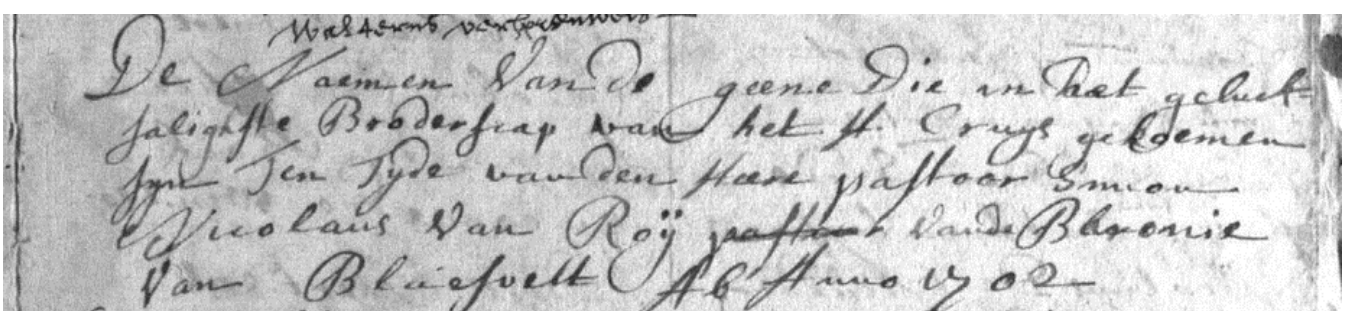 Walterus
De Naemen Van de geene Die in haet geluck-
saligste Broderscap van het H. Cruys gekoemen
syn Ten Tyde van den Heere pastoor Simon
Nicolaus Van Roÿ pastoor Vande Baronie
Van Blaesvelt Ab Anno 1702